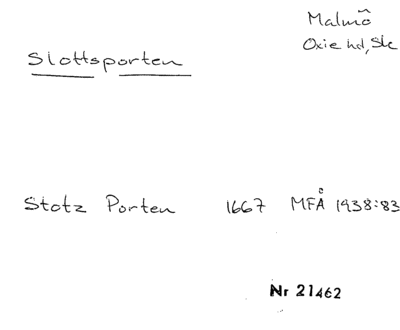 Malmö
Oxie hd, Sk
Slottsporten
Stotz Porten 1667 MFÅ 1938:83
Nr 21462